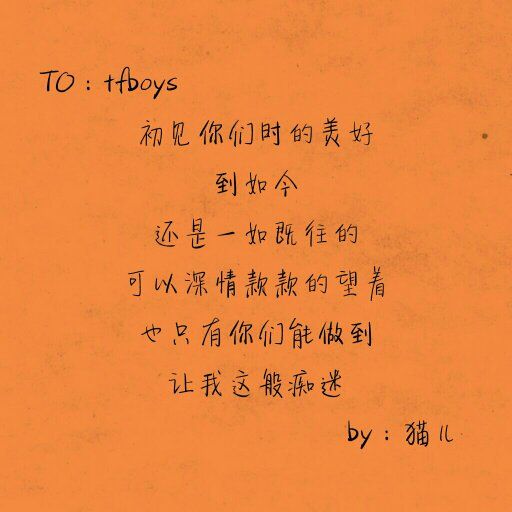 TO：tfboys
初见你们时的美好
到如今
还是一如既往的
可以深情款款的望着
也只有你们能做到
让我这般痴迷
by：猫儿